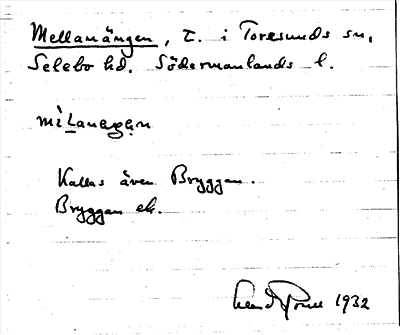 Mellanängen, t. i Toresunds sn,
Selebo hd. Södermanlands l.
mìLanæŋən
Kallas även Bryggan.
Bryggan ek.
1932